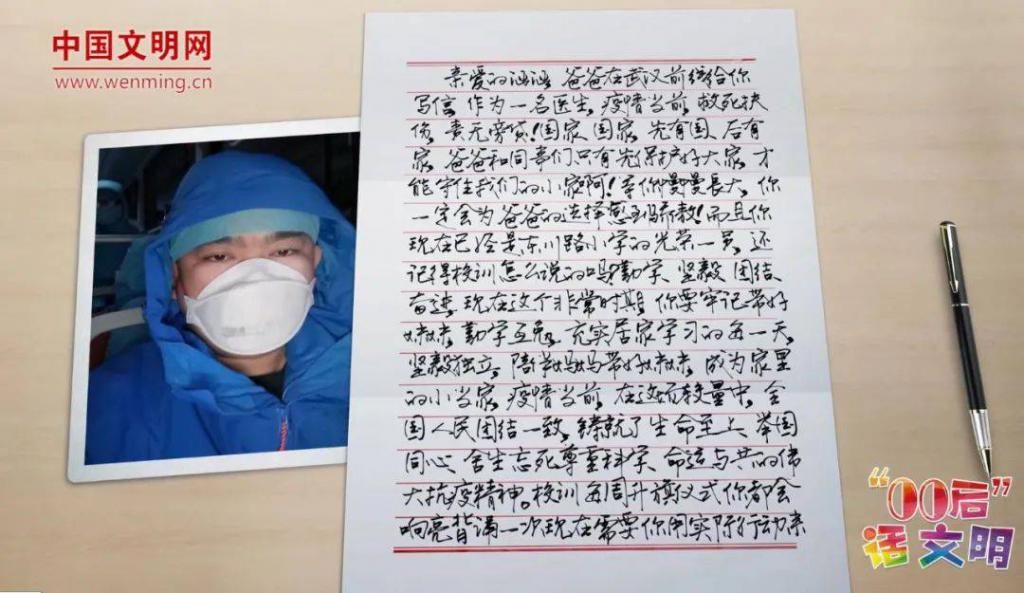 中国文明网
www.wenming.cn
亲爱的涵涵，爸爸在武汉前线给你
写信，作为一名医生，疫情当前，救死扶
伤，责无旁贷！国家，国家，先有国，后有
家，爸爸和同事们只有先保护好大家，才
能守住我们的小家啊！等你慢慢長大，你
一定会为爸爸的选择感到骄傲！而且你
现在已经是东川路小学的光荣一员，还
记得校训怎么说的吗？勤学、坚毅、团结、
奋进，现在这个非常时期，你要牢记带好
妹妹，勤学互勉，充实居家学习的每一天，
坚毅独立，陪着妈妈带好妹妹，成为家里
的小当家，疫情当前，在这场较量中，全
国人民团结一致，铸就了生命至上，举国
同心、舍生忘死、尊重科学、命运与共的伟
大抗疫精神。校训每周升旗仪式你都会
响亮背诵一次，现在需要你用实际行动来
“00后”
话文明